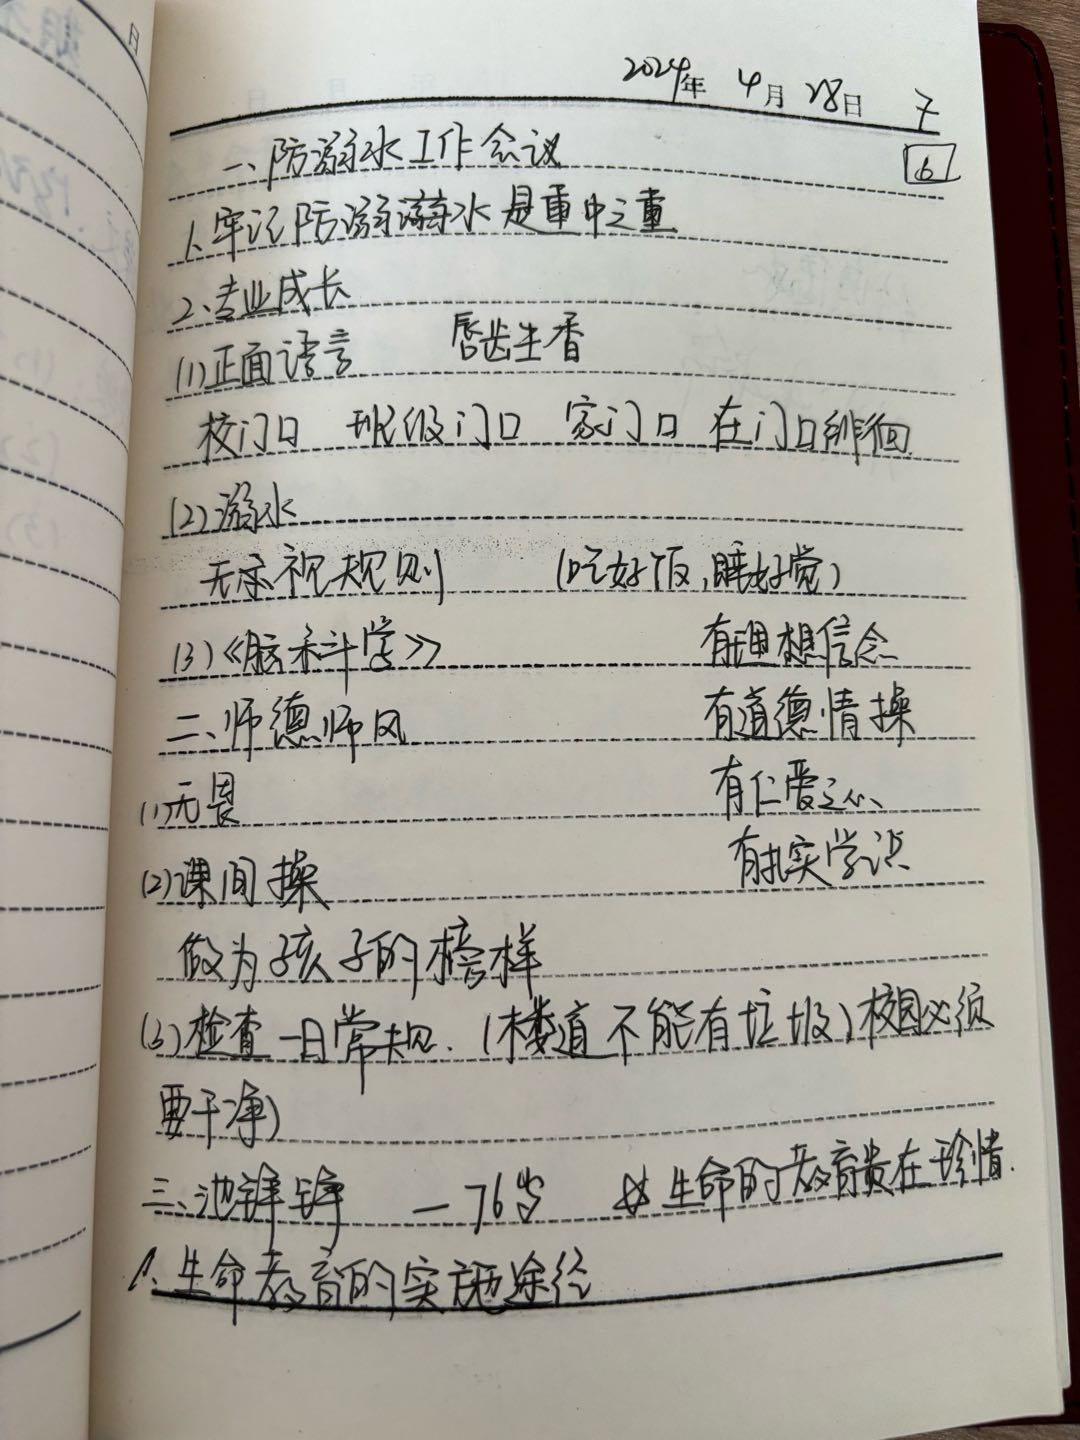 2024年 4月 28日
6
一、防溺水工作会议
1、牢记防溺溺水是重中之重
2、专业成长
(1)正面语言 唇齿生香
校门口 班级门口 家门口 在门口徘徊
(2)溺水
无示视规则 (吃好饭,睡好觉)
(3)《脑科学》 有理想信念
二、师德师风 有道德情操
(1)无畏 有仁爱之心、
(2)课间操 有扎实学识
做为孩子的榜样
(3)检查一日常规.(楼道不能有垃圾)校园必须
要干净)
三、池 — 76岁 生命的教育贵在珍惜.
1、生命教育的实施途径